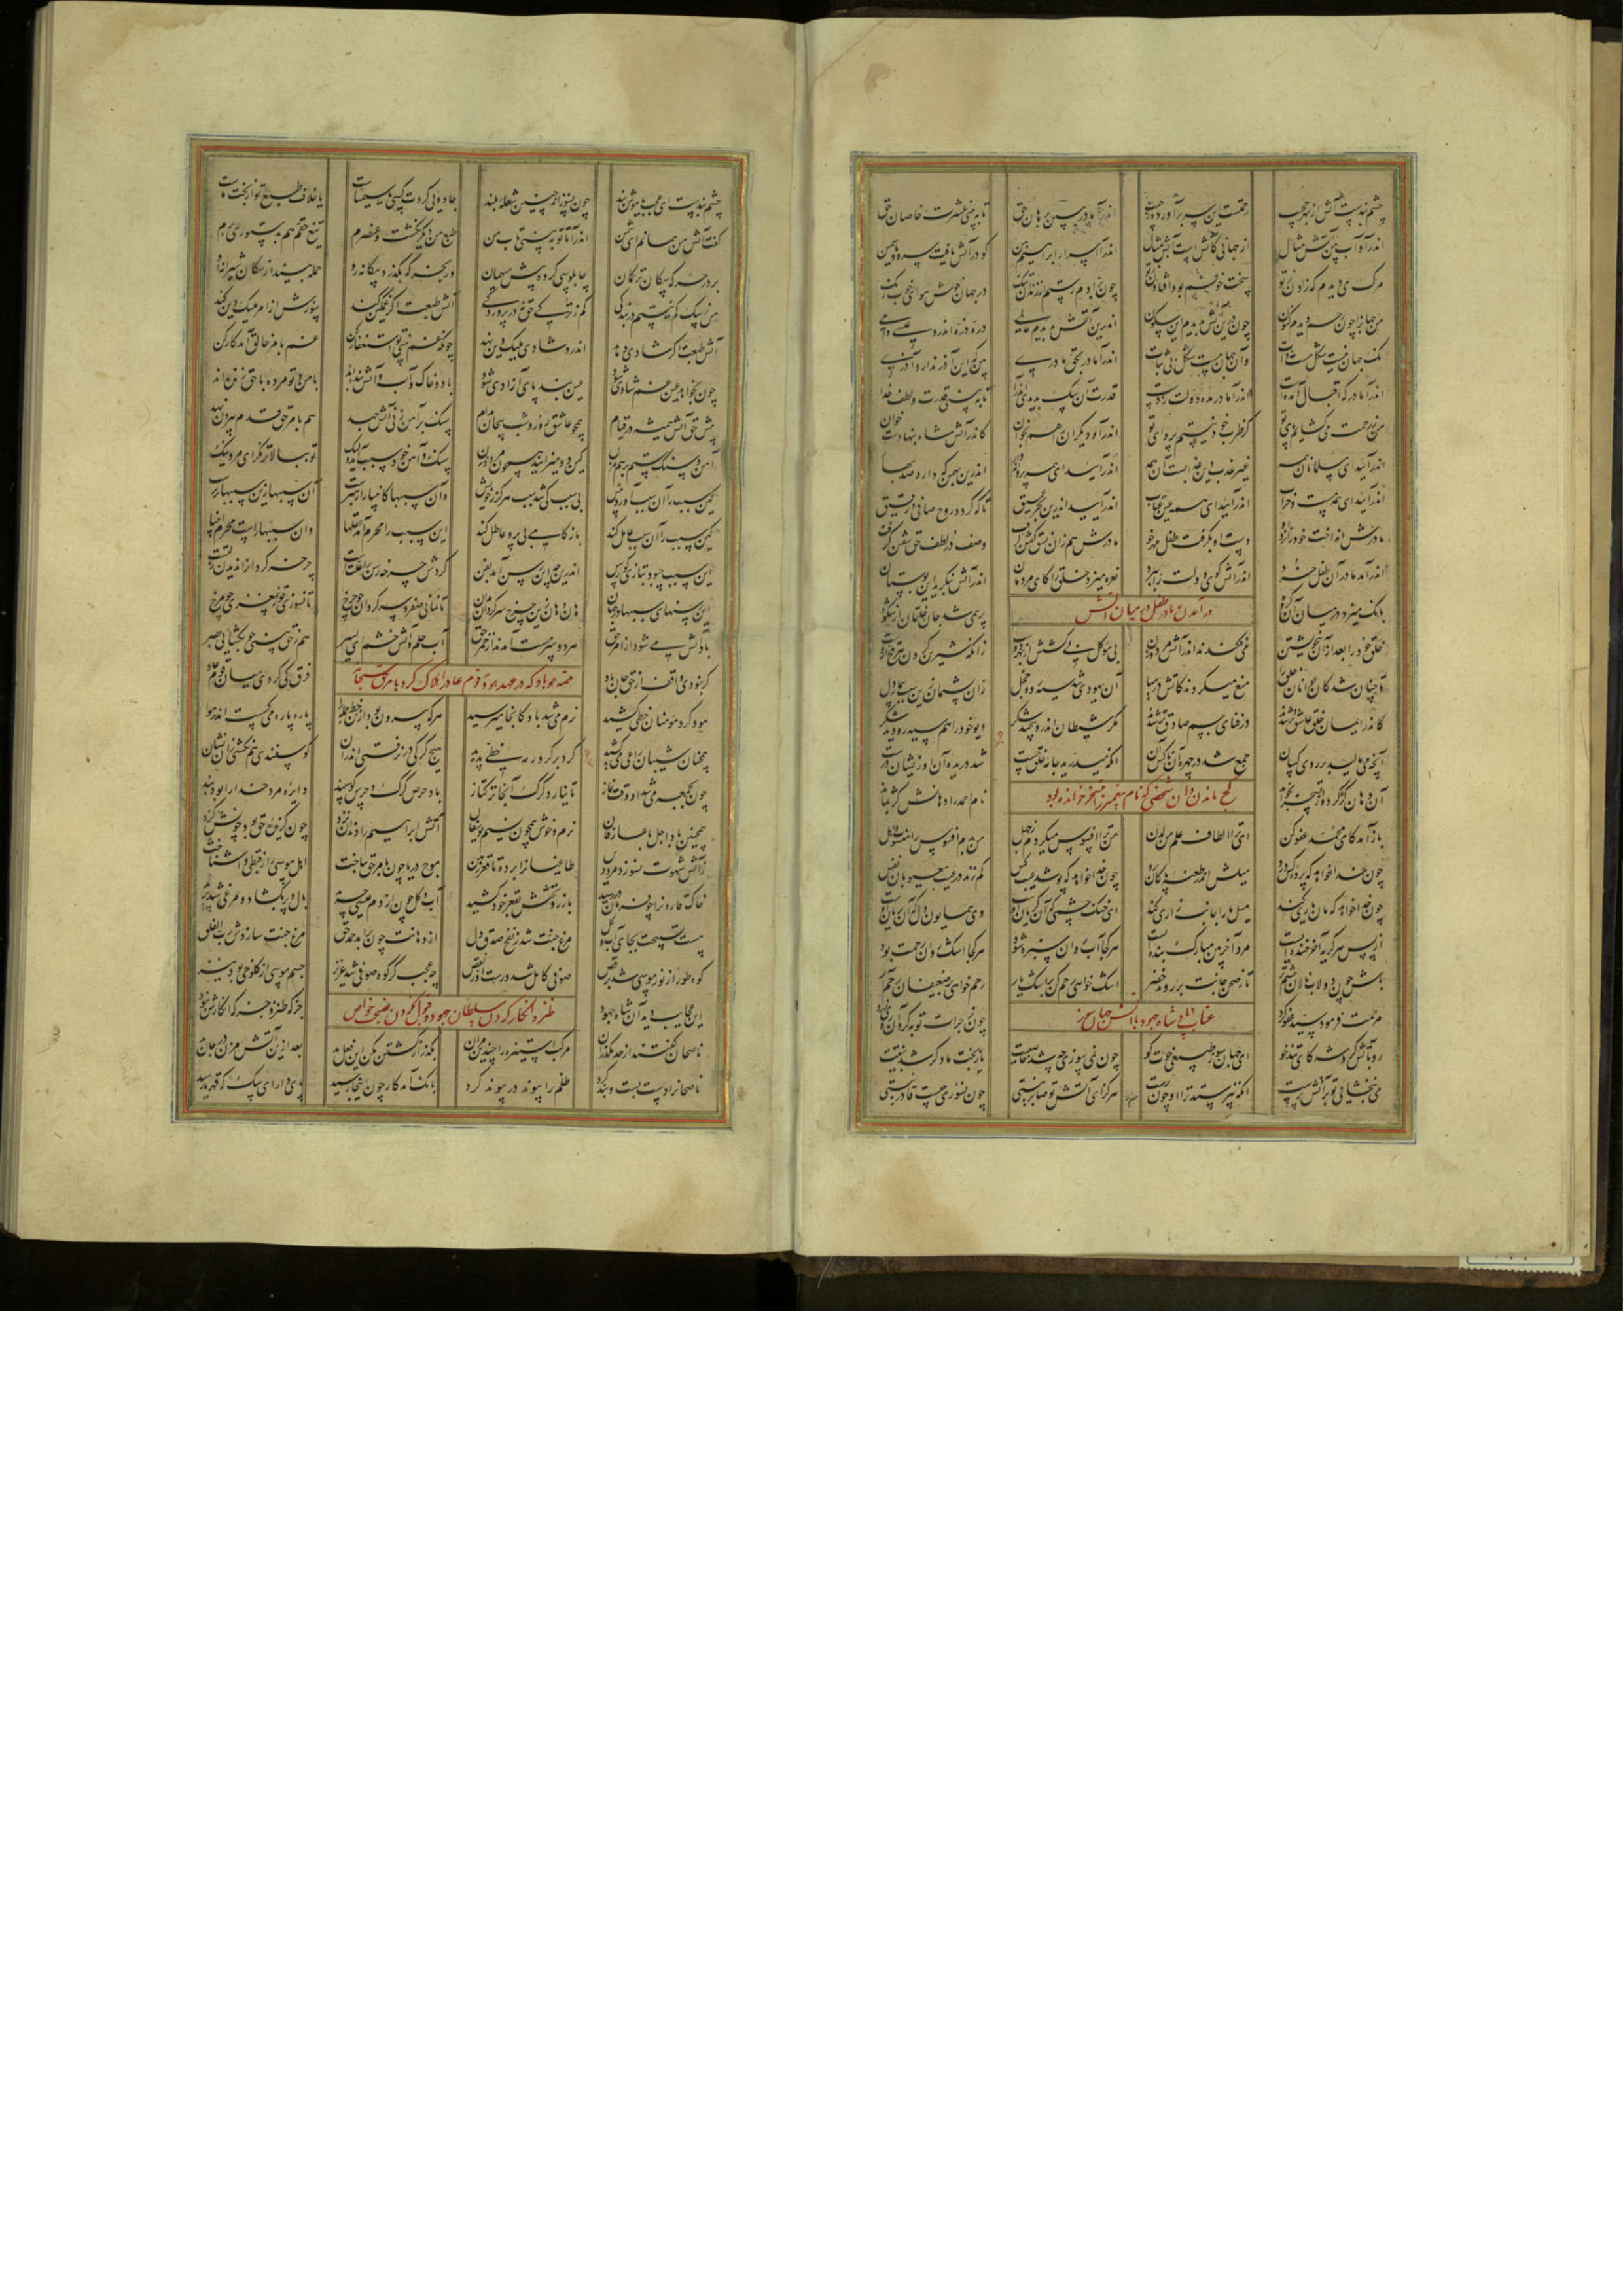 چشم بندست آتش از بهر حجیب رحمتست این سر برآورده ز جیب اندرآ مادر ببین برهان حق تا ببینی عشرت خاصان حق
اندرآ و آب بین آتش مثال از جهانی کآتش است آبش مثال اندرآ اسرار ابراهیم بین کو در آتش یافت سرو و یاسمین
مرگ می دیدم که زادن ز تو سخت خوفم بود افتادن ز تو چون بزادم رستم از زندان تنک در جهان خوش هوای خوب رنک
من جهانرا چون رحم دیدم کنون چون درین آتش بدیدم این سکون اندرین آتش بدیدم عالمی ذره ذره اندرو عیسی دمی
نک جهان نیست شکل هست ذات وان جهان هست شکل بی ثبات اندرآ مادر بحق مادری بین که این آذر ندارد آذری
اندرآ مادر که اقبال آمدست اندرآ مادر مده دولت ز دست قدرت آن سک بدیدی اندرآ تا ببینی قدرت و لطف خدا
من ز رحمت می کشایم پای تو کز طرب خود نیستم پروای تو اندرآ و دیگران را هم بخوان کاندر آتش شاه بنهادست خوان
اندرآیید ای مسلمانان همه غیر عذب دین عذابست آن همه اندرآیید ای همه پروانه وار اندرین که دارد صد بهار
اندرآیید ای همه مست و خراب اندرآیید ای همه عین عتاب اندرآیید اندرین بحر عمیق تا که کردد روح صافی و رقیق
مادرش انداخت خود را اندرو دست او بکرفت طفل مهرخو مادرش هم زان نسق کفتن کرفت وصف در لطف حق سفتن کرفت
اندرآمد مادر آن طفل خرد اندر آتش کوی دولت را ببرد نعره میزد خلق را کای مردمان اندر آتش بنکرید این بوستان
در آمدن مادر طفل در میان آتش
بانک میزد در میان آن کروه پر همی شد جان خلقان از شکوه
خلق خود را بعد از آن بی خویشتن می فکندند اندر آتش مرد و زن بی موکل بی کشش از عشق دوست زانکه شیرین کردن هر تلخ ازوست
تا چنان شد کان عوانان خلق را منع میکردند کآتش در میا آن یهودی شد سیه رو و خجل زان پشیمان زین سبب بیمار دل
کاندر ایمان خلق عاشق تر شدند در فنای جسم صادق تر شدند مکر شیطان هم درو پیچید شکر دیو خود را هم سیه رو دید شکر
آنچه می مالید بر روی کسان جمع شد در چهره آن ناکس آن آنکه میدرید جامه خلق چست شد دریده آن او زیشان درست
کج ماندن دهان شخصی که نام پیغمبر را بتمسخر خوانده بود
آن دهان کژ کرد و از تسخر بخواند نام احمد را دهانش کژ بماند
باز آمد کای محمد عفو کن ای ترا الطاف علم من لدن من ترا افسوس میکردم ز جهل من بدم افسوس را منسوب و اهل
چون خدا خواهد که پرده کس درد میلش اندر طعنه پاکان برد چون خدا خواهد که پوشد عیب کس کم زند در عیب معیوبان نفس
چون خدا خواهد که مان یاری کند میل ما را جانب زاری کند ای خنک چشمی که آن کریان اوست وی همایون دل که آن بریان اوست
از پس هر کریه آخر خنده ایست مرد آخر بین مبارک بنده ایست هر کجا آب روان سبزه شود هر کجا اشک روان رحمت بود
باش چون دولاب نالان چشم تر تا ز صحن جانت بر روید خضر اشک خواهی رحم کن بر اشک بار رحم خواهی بر ضعیفان رحم آر
عتاب پادشاه جهود با آتش جهان سوز
مرحمت فرمود سید عفو کرد چون ز جرات توبه کرد آن روی زرد
رو بآتش کرد شه کای تند خو آن جهان سوز طبیعی خوت کو چون نمی سوزی چه شد خاصیتت یا ز بخت ما دکر شد نیتت
می نبخشایی تو بر آتش پرست آنکه نپرستد ترا او چون برست هرکز ای آتش تو صابر نیستی چون نسوزی چیست قادر نیستی
چشم بندست ای عجب یا هوش بند چون نسوزاند چنین شعله بلند جادویی کردت کسی یا سیمیاست یا خلاف طبع تو از بخت ماست
کفت آتش من همانم ای شمن اندرآ تا تو ببینی تاب من طبع من دیکر نکشت و عنصرم تیغ حقم هم بدستوری برم
بر در خرکه سکان ترکمان چاپلوسی کرده پیش میهمان ور بخرکه بکذرد بیکانه رو حمله بیند از سکان شیرانه او
من ز سک کم نیستم در بندکی کم ز ترکی نیست حق در زندکی آتش طبعت اکر غمکین کند سوزش از امر ملیک دین کند
آتش طبعت اکر شادی دهد اندرو شادی ملیک دین نهد چونکه غم بینی تو استغفار کن غم بامر خالق آمد کار کن
چون بخواهد عین غم شادی شود عین بند پای آزادی شود باد و خاک و آب و آتش بنده اند با من و تو مرده با حق زنده اند
پیش حق آتش همیشه در قیام همچو عاشق روز و شب پیچان مدام سنک بر آهن زنی آتش جهد هم بامر حق قدم بیرون نهد
آهن و سنک ستم بر هم مزن کین دو میزایند همچون مرد و زن سنک و آهن خود سبب آمد ولیک تو ببالاتر نکر ای مرد نیک
کین سبب را آن سبب آورد پیش بی سبب کی شد سبب هرکز ز خویش وان سببها کانبیا را رهبرست آن سببها زین سببها برترست
کین سبب را آن سبب عامل کند باز کاهی بی پر و عاطل کند این سبب را محرم آمد عقلها وان سببها راست محرم انبیا
این سبب چبود بتازی کو رسن اندرین چه این رسن آمد بفن کردش چرخه رسن را علتست چرخه کردان را ندیدن زلتست
این رسنهای سببها در جهان هان و هان زین چرخ سرکردان مدان تا نمانی صفر و سرکردان چو چرخ تا نسوزی تو ز بی مغزی چو مرخ
باد آتش می شود از امر حق هر دو سرمست آمدند از خمر حق آب حلم و آتش خشم ای پسر هم ز حق بینی چو بکشایی بصر
قصه هود باد که در عهد هود قوم عاد را هلاک کرد بامر حق سبحانه
کر نبودی واقف از حق جان باد فرق کی کردی میان قوم عاد
هود کرد مومنان خطی کشید نرم می شد باد کانجا میرسید هر که بیرون بود زان خط جمله را پاره پاره می کسست اندر هوا
همچنان شیبان راعی می کشید کرد بر کرد رمه خطی پدید هیچ کرکی در نرفتی اندر آن کوسفندی هم نکشتی زان نشان
چون بجمعه می شد او وقت نماز تا نیارد کرک آنجا ترکتاز باد حرص کرک و حرص کوسفند دایره مرد خدا را بود بند
همچنین باد اجل با عارفان نرم و خوش همچون نسیم یوسفان آتش ابراهیم را دندان نزد چون کزیده حق بود چونش کزد
ز آتش شهوت نسوزد مرد دین طاغیان را برده تا قعر زمین موج دریا چون بامر حق بتاخت اهل موسی را ز قبطی وا شناخت
خاک قارون را چو فرمان در رسید با زر و تختش بقعر خود کشید آب و کل چون از دم عیسی چرید بال و پر بکشاد و مرغی شد پرید
هست تسبیحت بجای آب و کل مرغ جنت شد ز نفخ صدق دل از دهانت چون برآمد حمد حق مرغ جنت سازدش رب الفلق
کوه طور از نور موسی شد برقص صوفی کامل شد و رست او ز نقص چه عجب کر کوه صوفی شد عزیز جسم موسی از کلوخی بود نیز
طنز و انکار کردن سلطان جهود و قبول نکردن نصیحت خواص
این عجایب دید آن شاه جهود جز که طنز و جز که انکارش نبود
ناصحان کفتند از حد مکذران مرکب استیزه را چندین مران بکذر از کشتن مکن این فعل بد بعد ازین آتش مزن در جان خود
ناصحانرا دست بست و بند کرد ظلم را پیوند در پیوند کرد بانک آمد کار چون اینجا رسید پای دار ای سک که قهر ما رسید